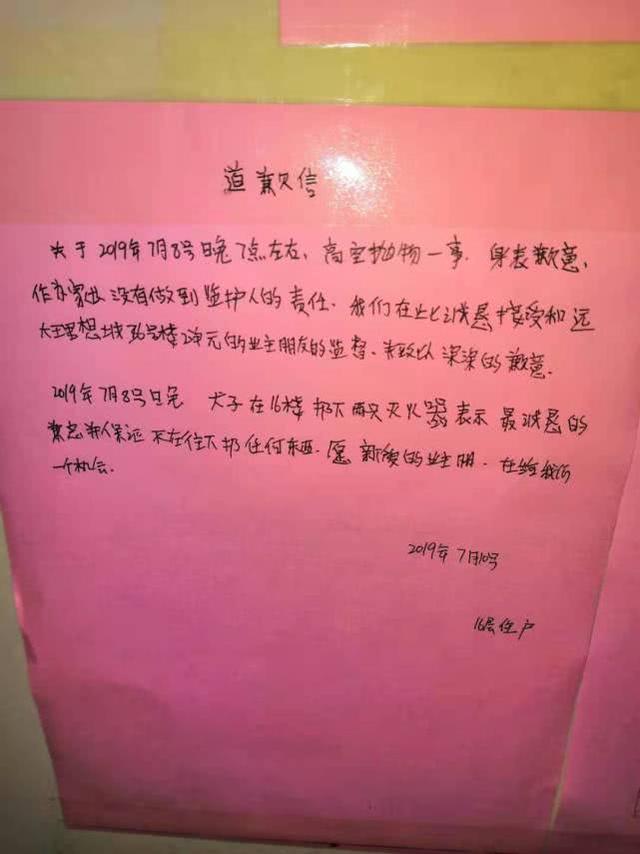 道歉信
关于2019年7月8号晚7点左右、高空抛物一事. 身表歉意、
作为家 没有做到监护人的责任. 我们在此诚恳接受和 远
大理想城36号楼2单元的业主朋友的监督、来致以深深的歉意.
2019年7月8号晚 犬子在16楼 扔下两只灭火器 表示最诚恳的
保证 不在往下扔任何东西. 愿 的业主朋. 在给我们
一个机会.
2019年7月10号
16层住户